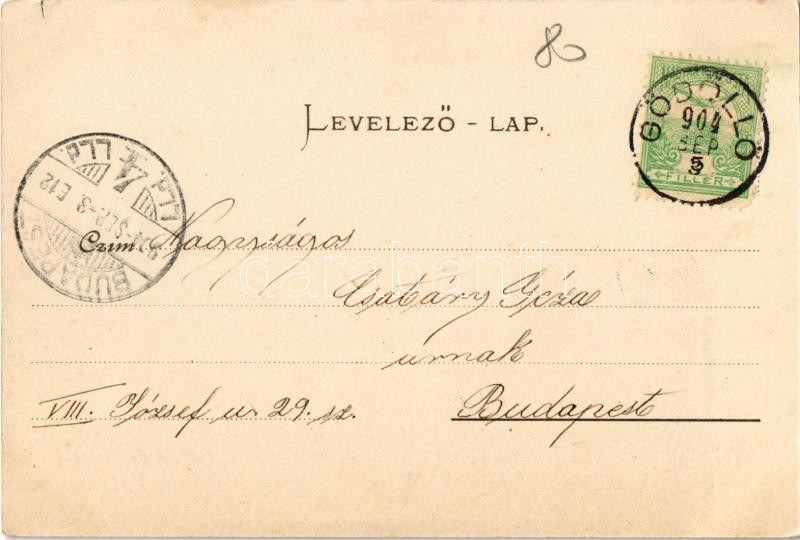 80
LEVELEZŐ - LAP.
GÖDÖLLŐ
904
SEP
3
5
FILLÉR
4
904 SEP-3. E12
BUDAPEST
Czim Nagyságos
Csatáry Géza
urnak
VIII. József u. 29. sz. Budapest
darabanth